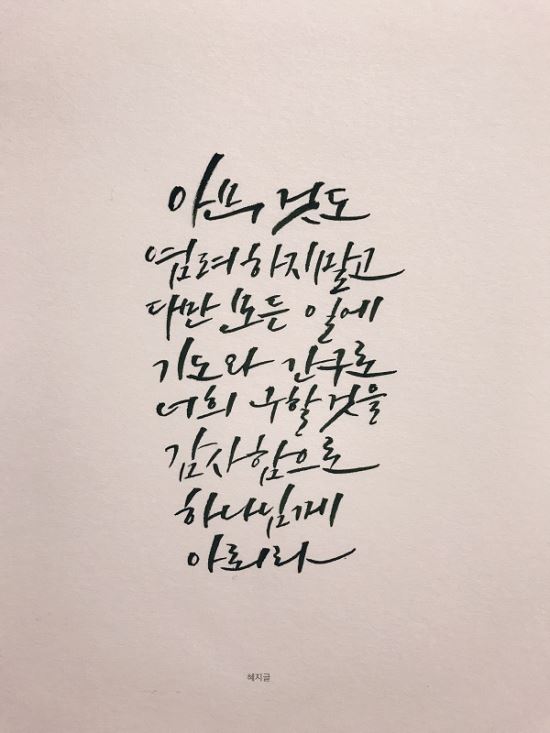 아무 것도
염려하지말고
다만 모든 일에
기도와 간구로
너희 구할 것을
감사함으로
하나님께
아뢰라
혜지글